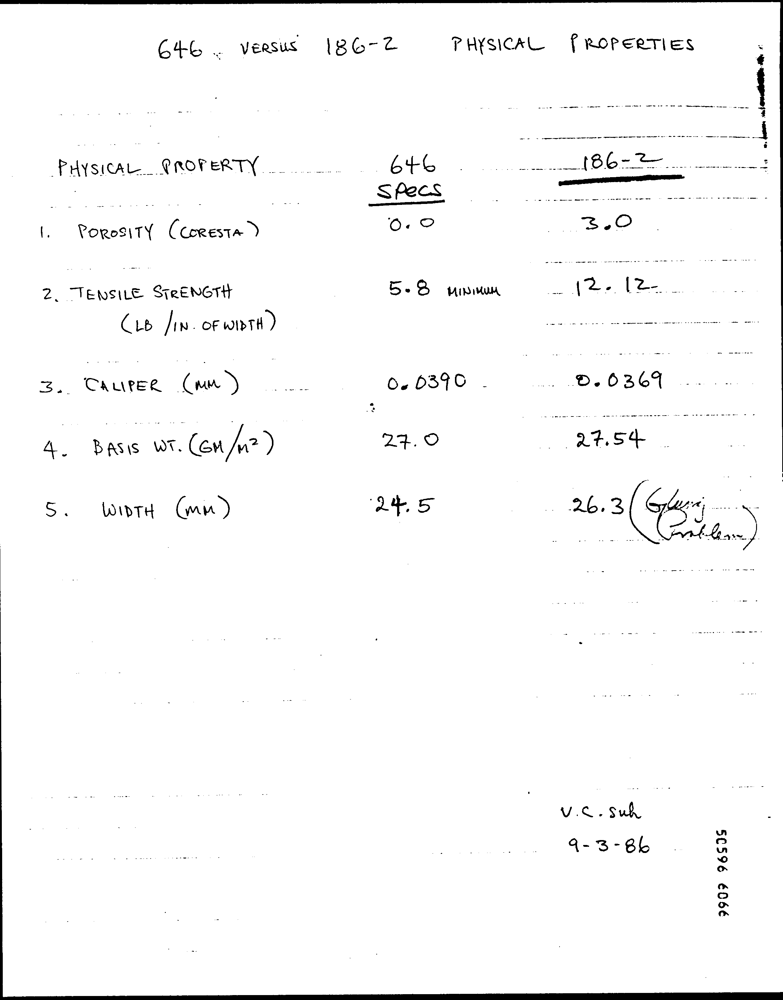 646 VERSUS 186-2 PHYSICAL PROPERTIES
PHYSICAL PROPERTY 646 186-2
SPECS
1. POROSITY (CORESTA) 0.0 3.0
2. TENSILE STRENGTH 5.8 MINIMUM 12.12
(LB/IN. OF WIDTH)
3. CALIPER (MM) 0.0390 0.0369
4. BASIS WT. (GM/M²) 27.0 27.54
5. WIDTH (MM) 24.5 26.3 (Gluing
Problem)
V.C. Suh
9-3-86
50596 6066